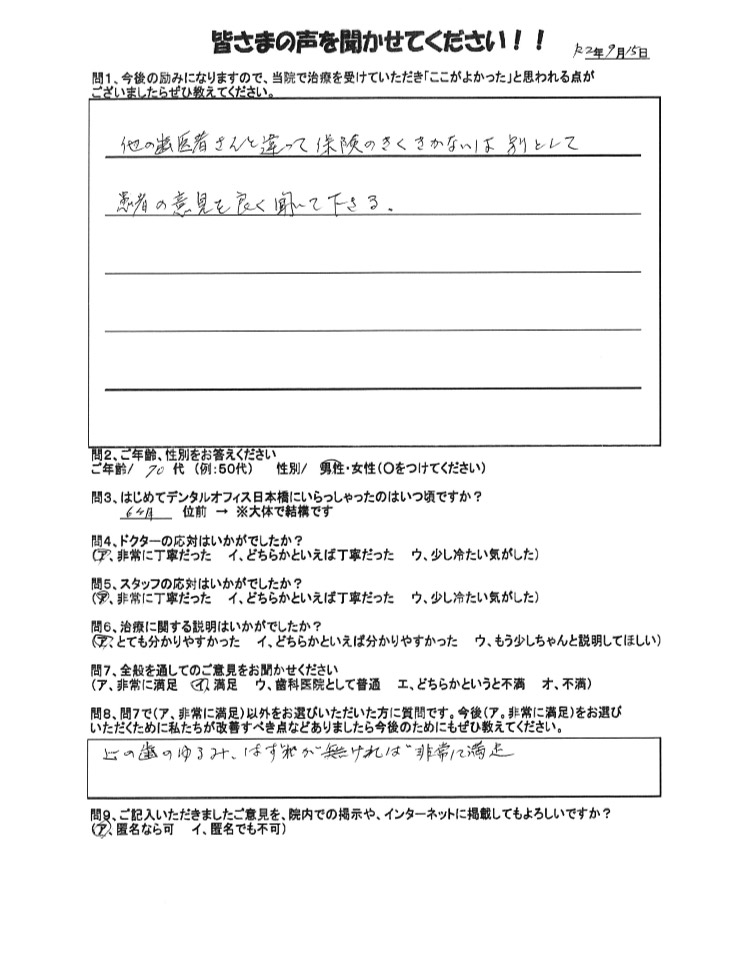 皆さまの声を聞かせてください！！
R2年9月15日
問1、今後の励みになりますので、当院で治療を受けていただき「ここがよかった」と思われる点が
ございましたらぜひ教えてください。
他の歯医者さんと違って保険のきくきかないは別として
患者の意見を良く聞いて下さる。
問2、ご年齢、性別をお答えください
ご年齢/ 70 代 (例:50代) 性別/ 男性・女性(○をつけてください)
問3、はじめてデンタルオフィス日本橋にいらっしゃったのはいつ頃ですか？
6ヶ月 位前 → ※大体で結構です
問4、ドクターの応対はいかがでしたか？
(ア、非常に丁寧だった イ、どちらかといえば丁寧だった ウ、少し冷たい気がした)
問5、スタッフの応対はいかがでしたか？
(ア、非常に丁寧だった イ、どちらかといえば丁寧だった ウ、少し冷たい気がした)
問6、治療に関する説明はいかがでしたか？
(ア、とても分かりやすかった イ、どちらかといえば分かりやすかった ウ、もう少しちゃんと説明してほしい)
問7、全般を通してのご意見をお聞かせください
(ア、非常に満足 イ、満足 ウ、歯科医院として普通 エ、どちらかというと不満 オ、不満)
問8、問7で(ア、非常に満足)以外をお選びいただいた方に質問です。今後(ア。非常に満足)をお選び
いただくために私たちが改善すべき点などありましたら今後のためにもぜひ教えてください。
上の歯のゆるみ、はずれが無ければ非常に満足
問9、ご記入いただきましたご意見を、院内での掲示や、インターネットに掲載してもよろしいですか？
(ア、匿名なら可 イ、匿名でも不可)